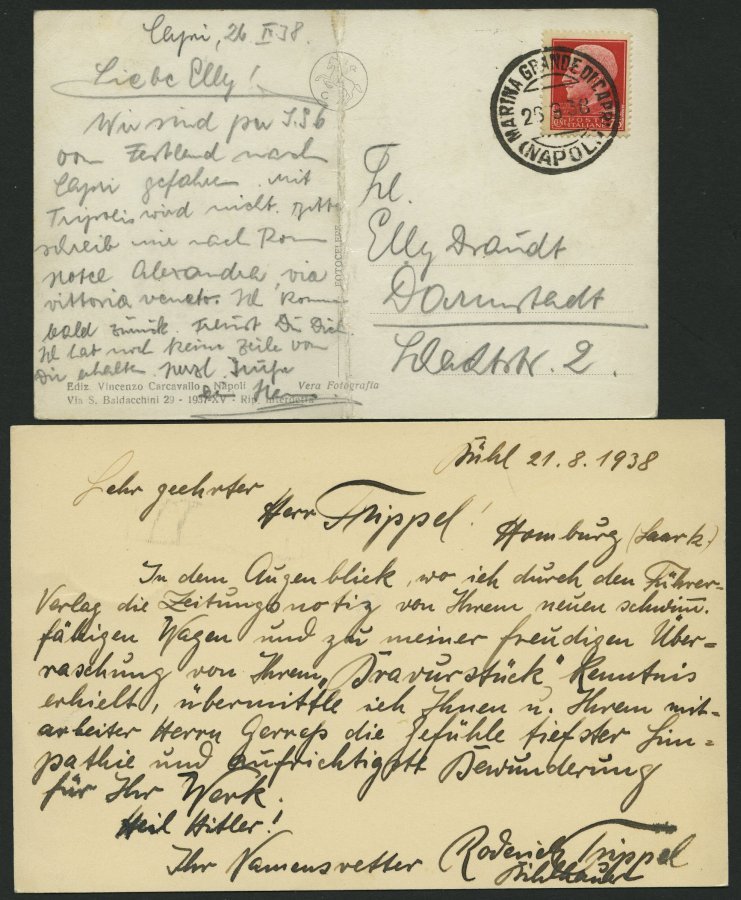 Capri, 26 IV 38.
Liebe Elly!
Wir sind per S.S6
vom Festland nach
Capri gefahren. Mit
Tripolis wird nicht. Bitte
schreib mir nach Rom
Hotel Alexandra, via
vittoria veneto. Ich komme
bald zurück. Freust Du Dich
Ich hab noch keine Zeile von
Dir erhalten herzl. Grüße
Ediz. Vincenzo Carcavallo - Napoli
Vera Fotografia
Via S. Baldacchini 29 - 1937-XV - Rip. interdetta
MARINA GRANDE DI CAPRI
(NAPOLI)
POSTE
ITALIANE
Frl.
Elly Draudt
Darmstadt
2.
Bühl 21.8.1938
Sehr geehrter
Herr Trippel!
Homburg (Saark.)
In dem Augenblick, wo ich durch den Führer-
Verlag die Zeitungsnotiz von Ihrem neuen schwimm.
fähigen Wagen und zu meiner freudigen Über-
raschung von Ihrem „Bravurstück" Kenntnis
erhielt, übermittle ich Ihnen u. Ihrem mit-
arbeiter Herrn die Gefühle tiefster Sim=
pathie und aufrichtigste Bewunderung
für Ihr Werk.
Heil Hitler!
Ihr Namensvetter Roderich Trippel
Bildhauer